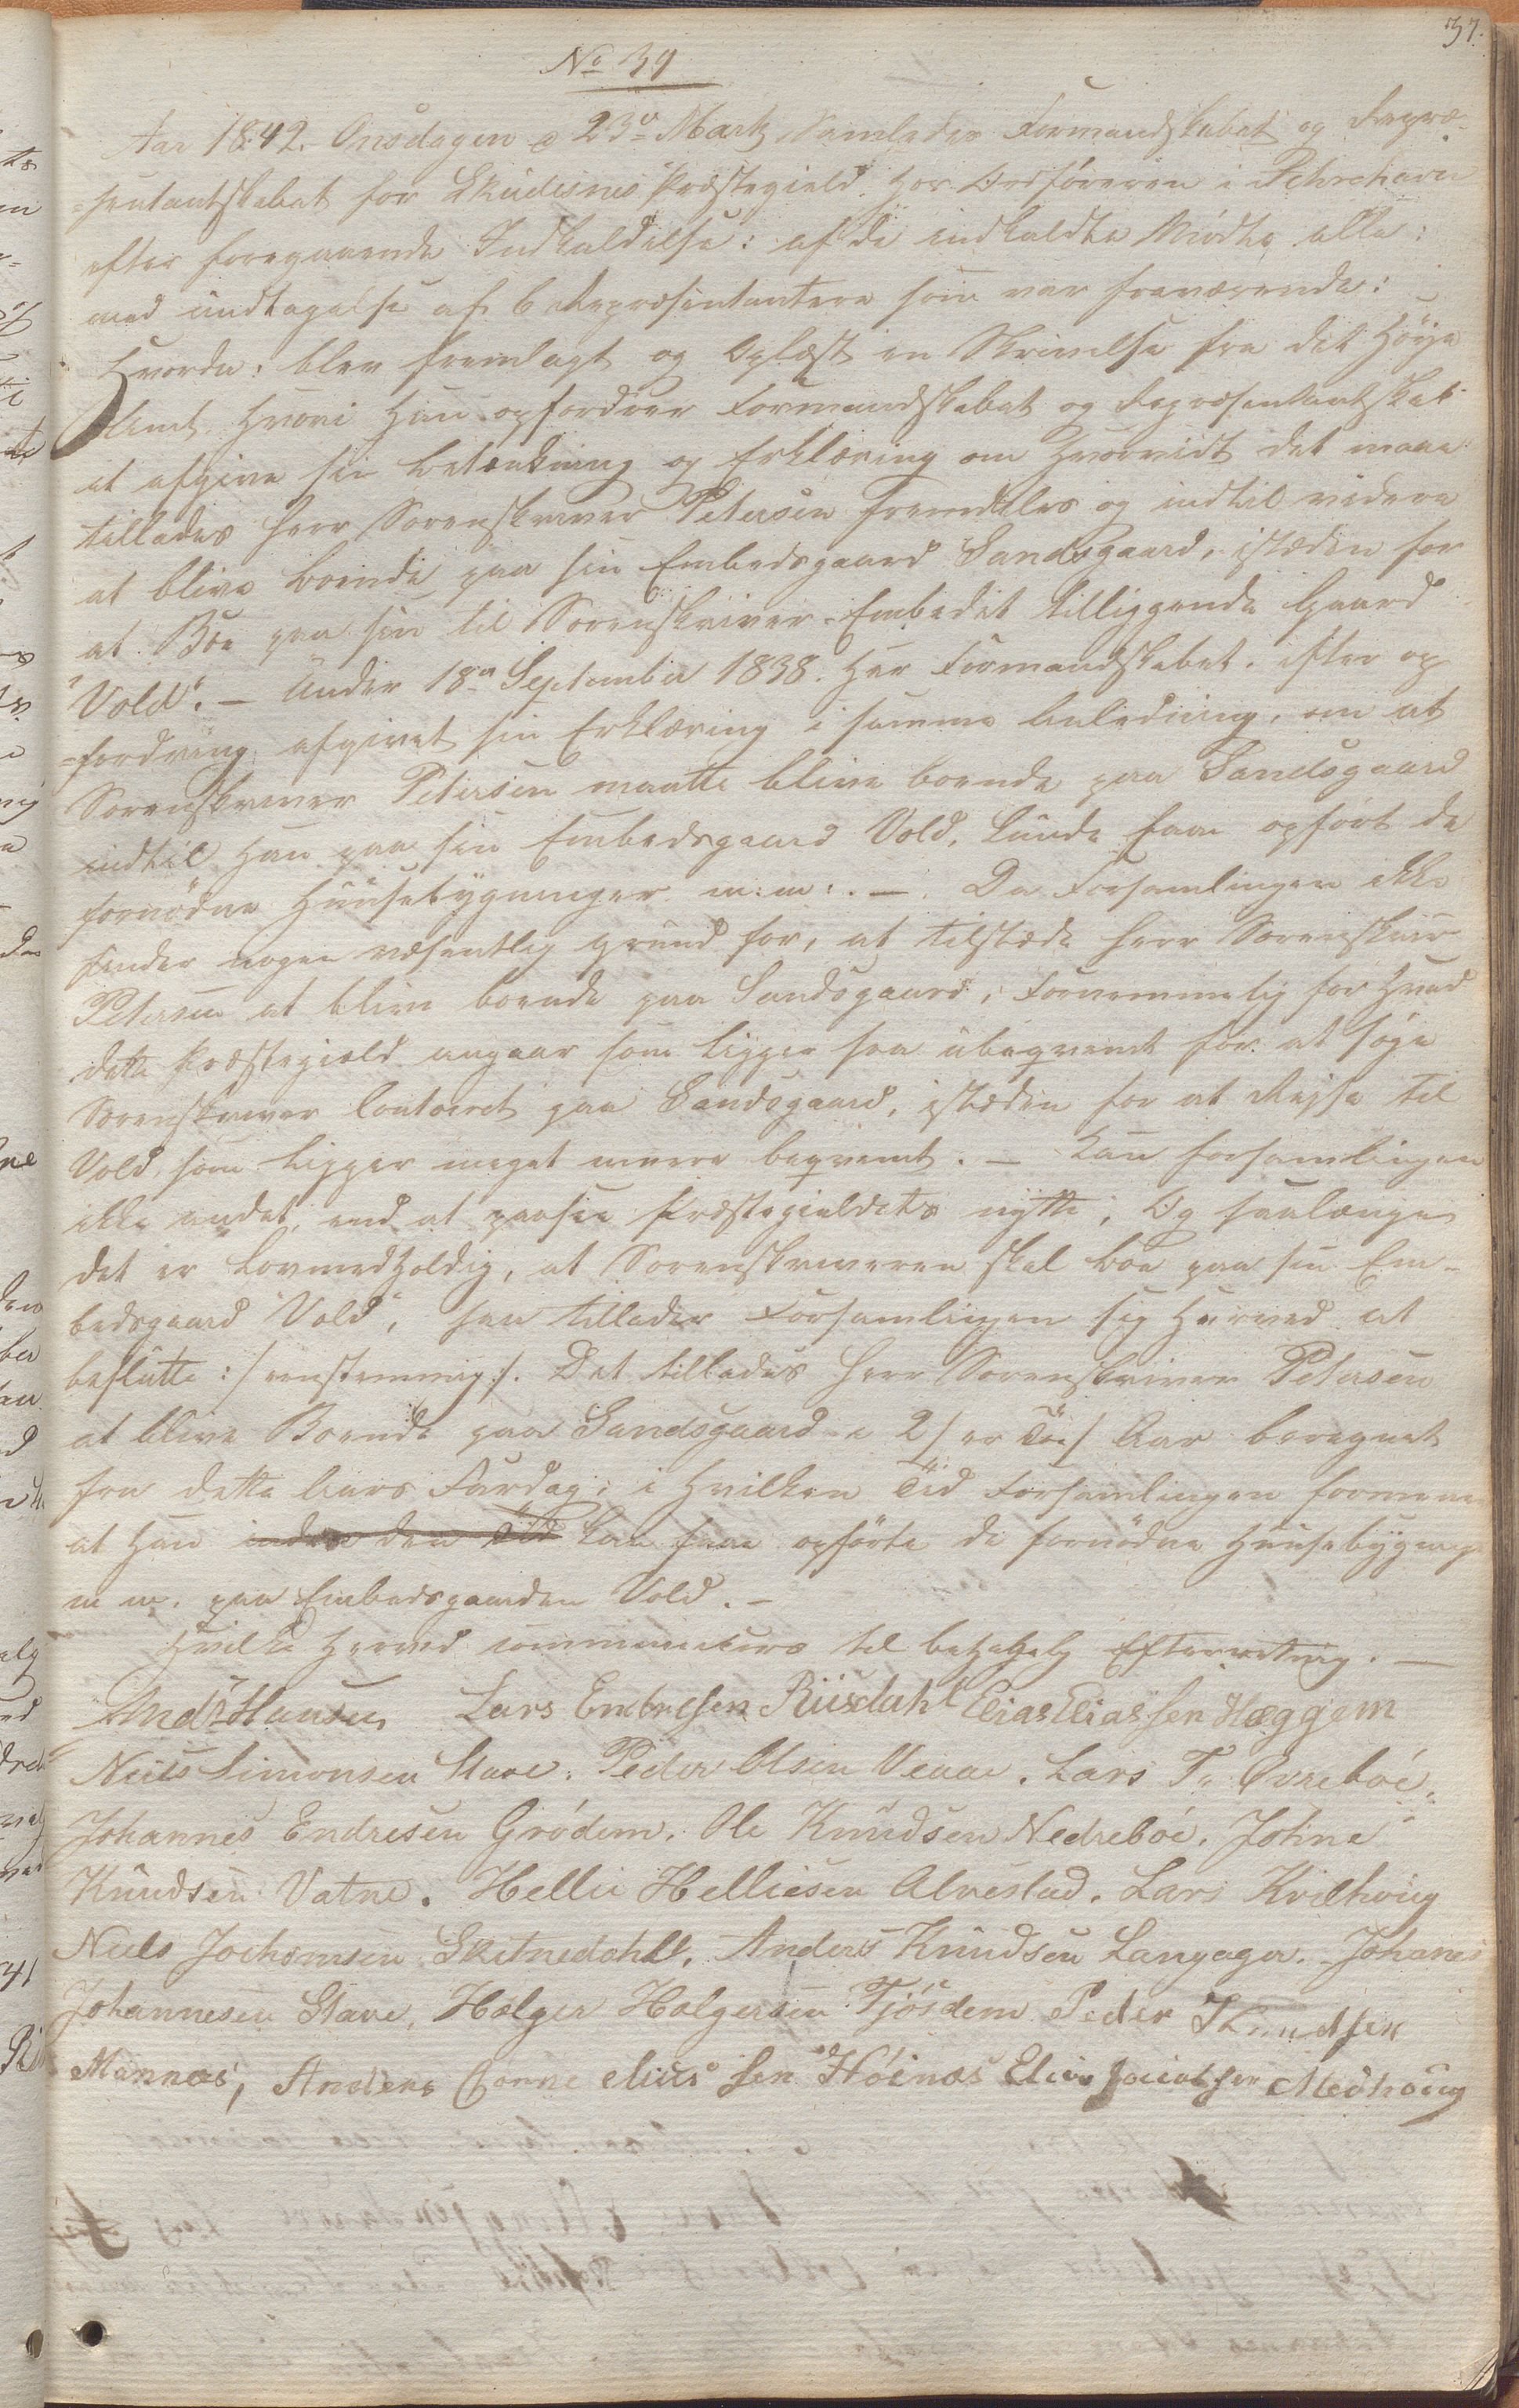 37.
No 39
Aar 1842. Onsdagen d 23de Martz Samledes Formandskabet og Repræ-
-sentantskabet for Skudesnes Præstegield hos Ordføreren i Pehrehavn
efter foregaaende Indkaldelse: af de indkaldte Mødte alle:
med undtagelse af 6 Repræsentantere som var fraværende:
Hvorda: blev fremlagt og Oplæst en Skrivelse fra det Høye
Amt hvori han opfordrer Formandskabet og Repræsentantskab
at afgive sin betænkning og Erklæring om hvorvidt det maae
tillades Herr Sorenskriver Petersen fremdeles og indtil videre
at blive boende paa sin Embedsgaard Sandsgaard, istæden for
at Boe paa sin til Sorenskriver-Embedet tilliggende Gaard
"Vold". – Under 18de September 1838. har Formandskabet. efter op
-fordring afgivet sin Erklæring i samme Anledning, om at
Sorenskriver Petersen maatte blive boende paa Sandsgaard
indtil han paa sin Embedsgaard Vold, kunde faae opført de
fornødne Huusebygninger m:m:. –. Da Forsamlingen ikke
finder nogen væsentlig grund for, at tilstæde Herr Sorenskriver
Petersen at blive boende paa Sandsgaard, fornemmelig for hvad
dette Præstegield angaar som ligger saa ubeqvemt for at søge
Sorenskriver Contoiret paa Sandsgaard, istæden for at Rejse til
Vold som ligger meget meere beqvemt. – kan forsamlingen
ikke andet, end at paasee Præstegieldets nytte, Og saalænge
det er lovmedholdig, at Sorenskriveren skal boe paa sin Em-
bedsgaard "Vold", saa tillader Forsamlingen sig herved at
beslutte :/ eenstemmig/: Det tillades Herr Sorenskriver Petersen
at blive Boende paa Sandsgaard i 2/ er Toe/ Aar beregnet
fra dette Aars Fardag; i hvilken Tid Forsamlingen formener
at han inden den Tid kan faae opførte de fornødne Huusebygninge
m m. paa Embedsgaarden Vold. –
Hvilke herved communiceres til behagelig Efterretning. –
Andrs Hansen Lars Endresen Riisdahl Elias Eliassen Hæggem
Niels Simonsen Stave. Peder Olsen Veaae. Lars T. Øvrebøe.
Johannes Endresen Grødem. Ole Knudsen Nedrebøe. Johne
Knudsen Vatne. Hellie Helliesen Alvestad. Lars Kvilhoug
Niels Jochomsen Skitnedahll. Anders Knudsen Langager. Johanes
Johannesen Stave, Holger Holgersen Tjøsdem Peder Knudsen
Mannæs, Anders Corneeliussen Høinæs Elias Medhoug